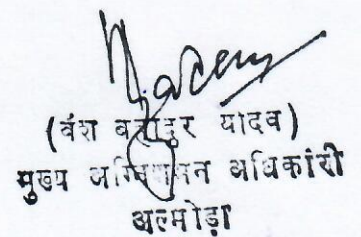 (वंश बहादुर यादव)
मुख्य अग्निशमन अधिकारी
अल्मोड़ा